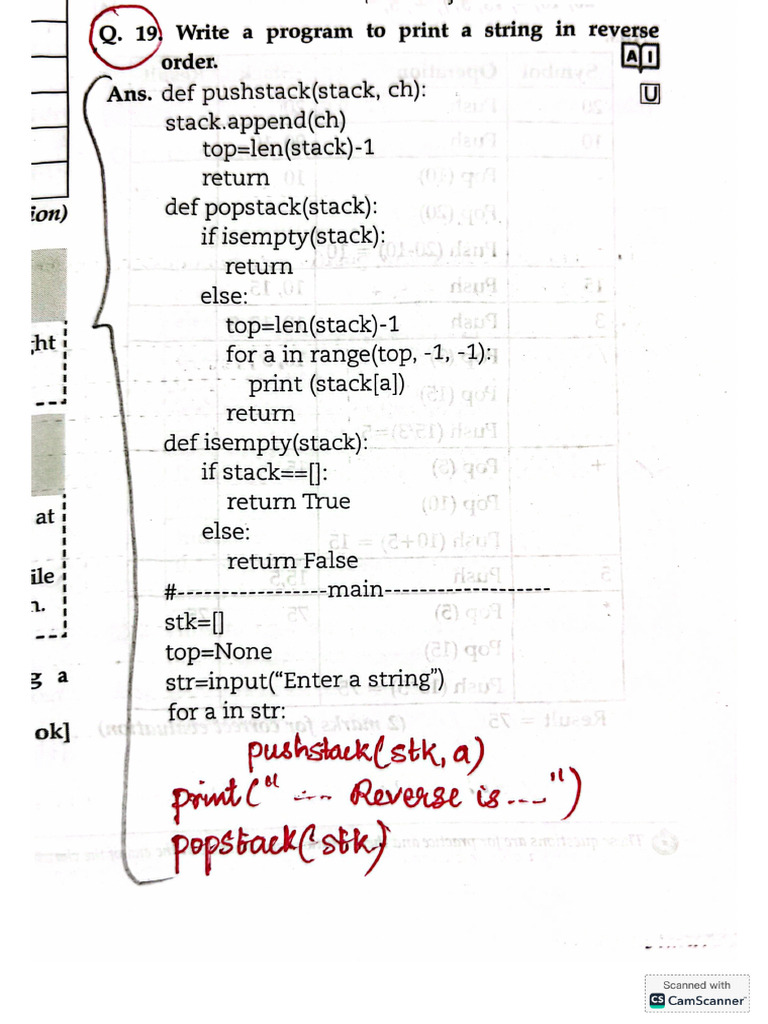 Q. 19. Write a program to print a string in reverse
order.
AI
U
Ans. def pushstack(stack, ch):
stack.append(ch)
top=len(stack)-1
return
def popstack(stack):
if isempty(stack):
return
else:
top=len(stack)-1
for a in range(top, -1, -1):
print (stack[a])
return
def isempty(stack):
if stack==[]:
return True
else:
return False
#-----------------main-------------------
stk=[]
top=None
str=input("Enter a string")
for a in str:
pushstack(stk, a)
print(" --- Reverse is ---")
popstack(stk)
ion)
ht
at
ile
n.
g a
ok]
Scanned with
CS CamScanner